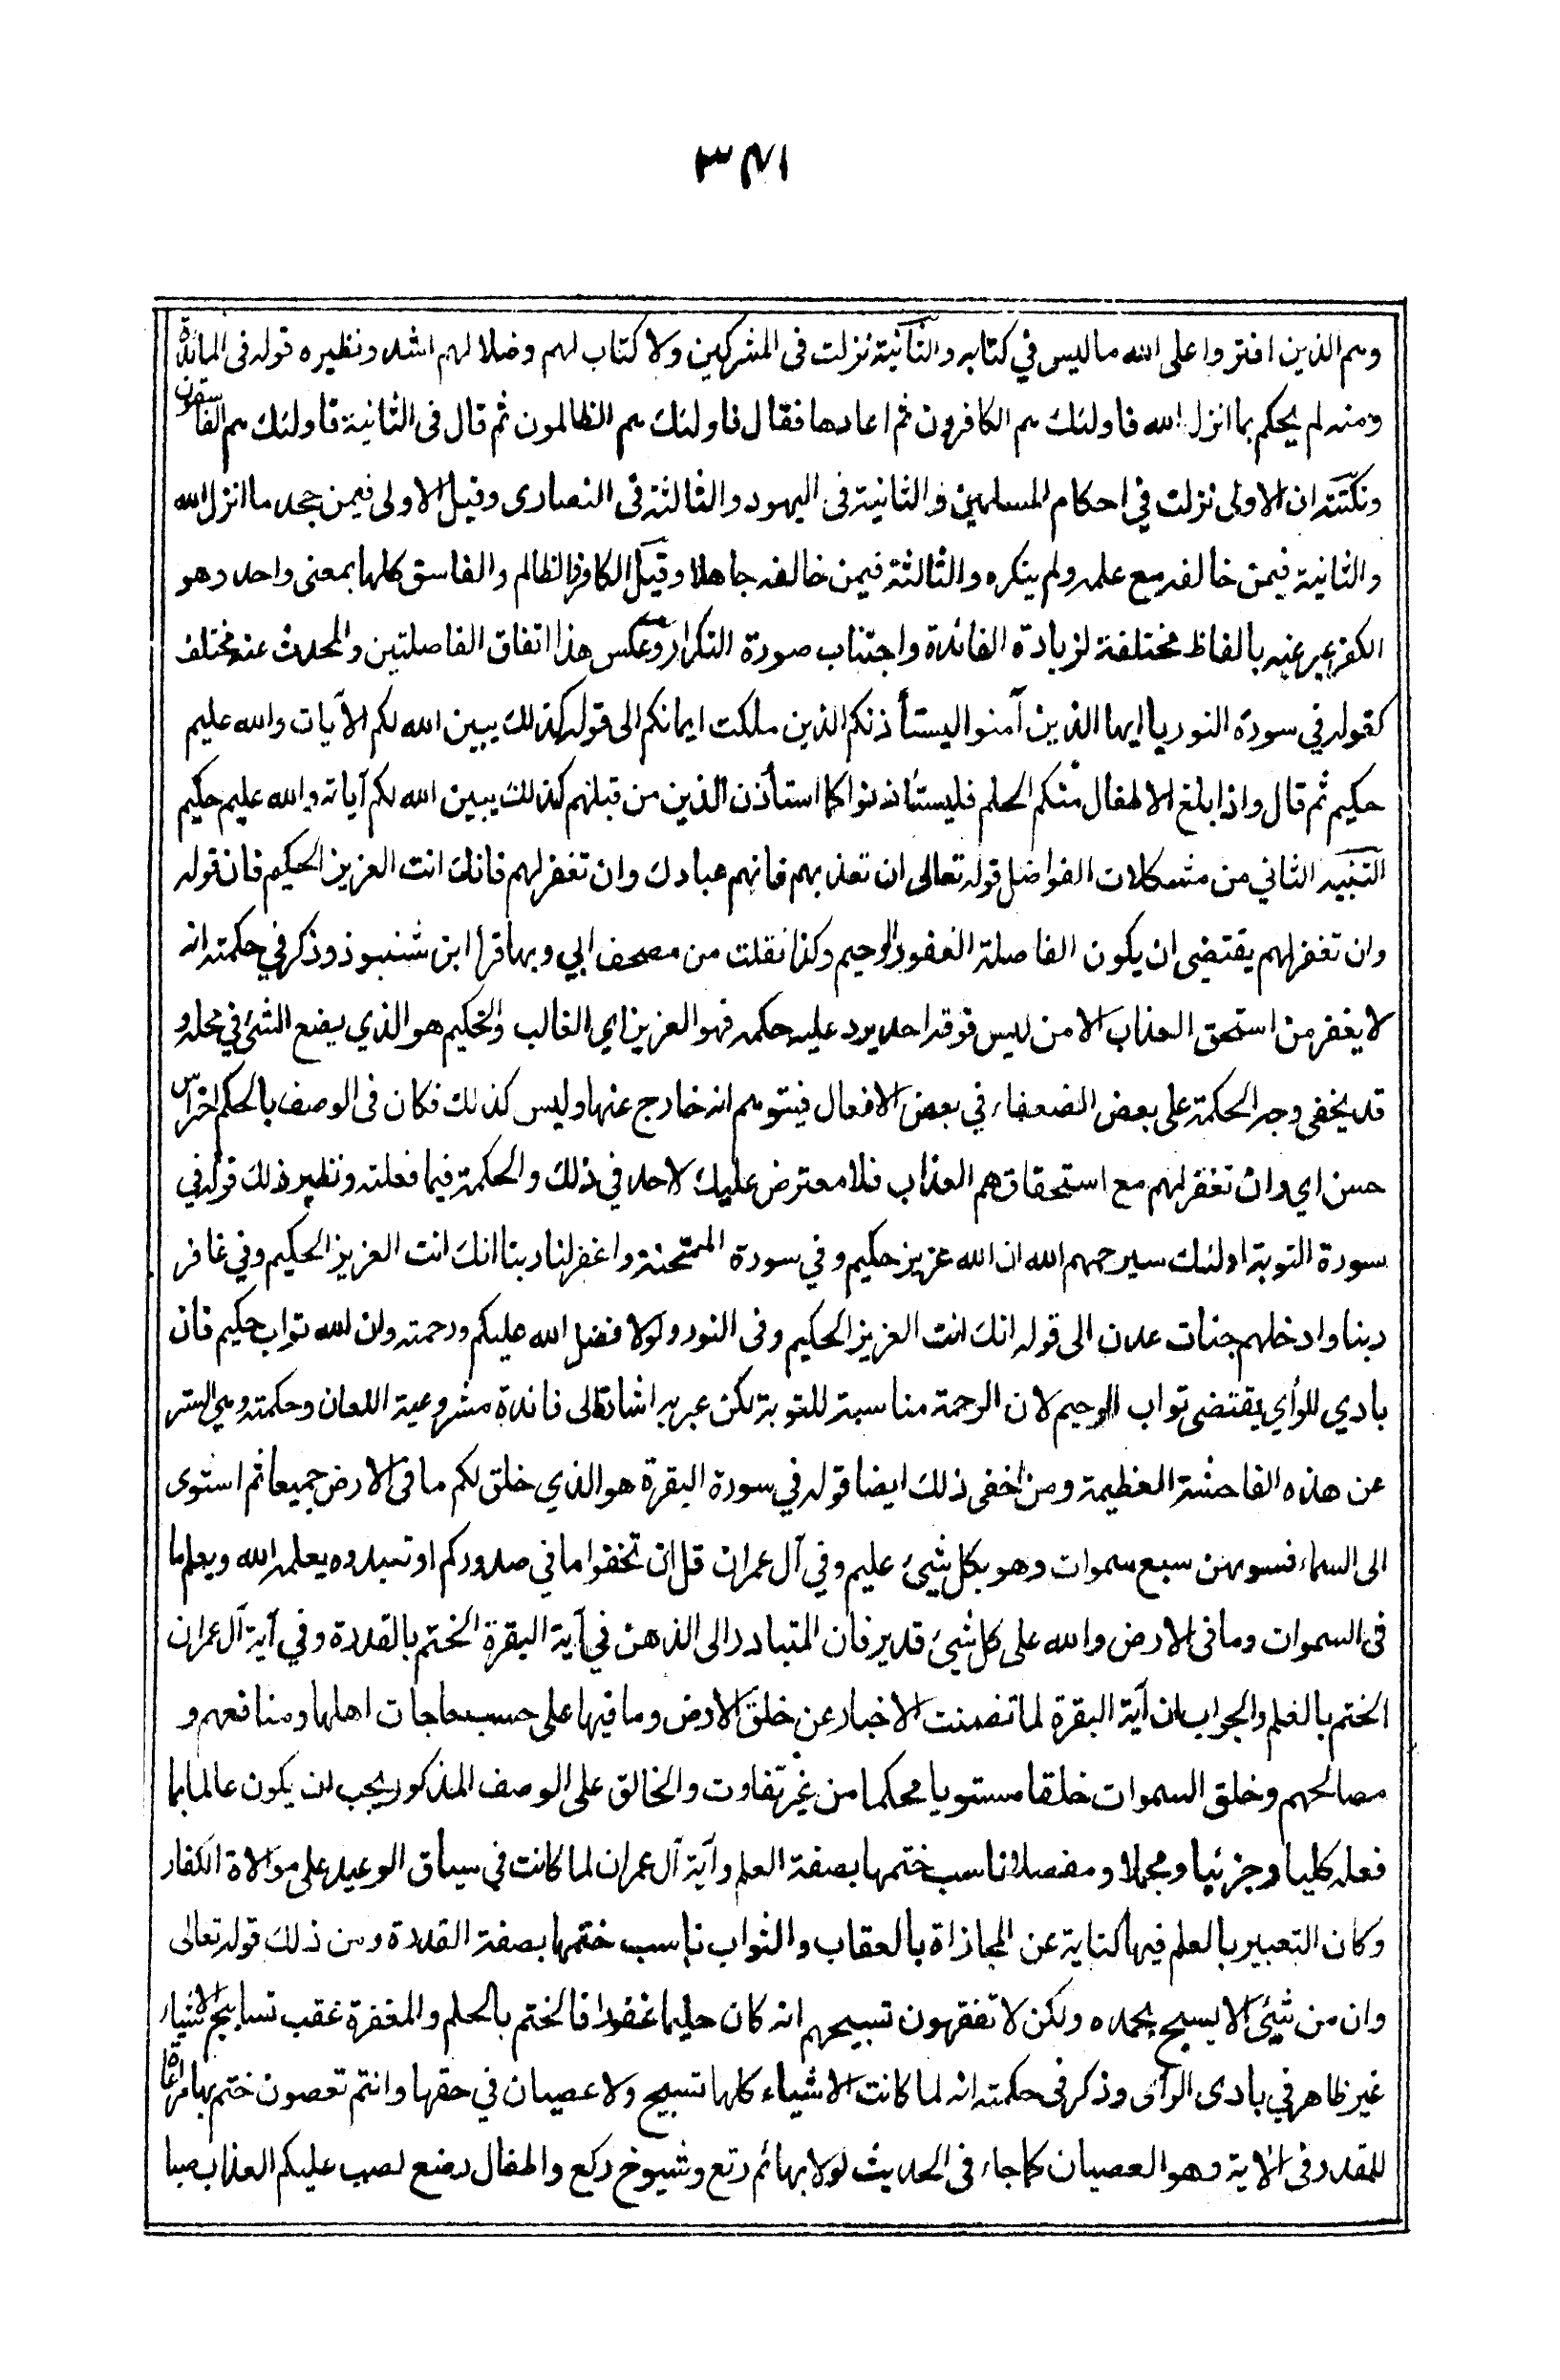 ٣٧١
وهم الذين افتروا على الله ما ليس في كتابه والثانية نزلت فى المشركين ولا كتاب لهم وضلالهم اشد ونظيره قوله فى المائدة
ومن لم يحكم بما انزل الله فاولئك هم الكافرون ثم اعادها فقال فاولئك هم الظالمون ثم قال فى الثانية فاولئك هم الفاسقون
ونكتته ان الاولى نزلت في احكام المسلمين والثانية فى اليهود والثالثة فى النصارى وقيل الاولى فيمن جحد ما انزل الله
والثانية فيمن خالفه مع علمه ولم ينكره والثالثة فيمن خالفه جاهلا وقيل الكافر والظالم والفاسق كلها بمعنى واحد وهو
الكفر عبر عنه بالفاظ مختلفة لزيادة الفائدة واجتناب صورة التكرار وعكس هذا اتفاق الفاصلتين والمحدث عنه مختلف
كقوله في سورة النور يا ايها الذين آمنوا ليستأذنكم الذين ملكت ايمانكم الى قوله كذلك يبين الله لكم الآيات والله عليم
حكيم ثم قال واذا بلغ الاطفال منكم الحلم فليستأذنوا كما استأذن الذين من قبلهم كذلك يبين الله لكم آياته والله عليم حكيم
التنبيه الثاني من مشكلات الفواصل قوله تعالى ان تعذبهم فانهم عبادك وان تغفر لهم فانك انت العزيز الحكيم فان قوله
وان تغفر لهم يقتضى ان يكون الفاصلة الغفور الرحيم وكذا نقلت من مصحف ابي وبها قرأ ابن شنبوذ وذكر في حكمته انه
لا يغفر من استحق العذاب الا من ليس فوقه احد يرد عليه حكمه فهو العزيز اي الغالب والحكيم هو الذي يضع الشئ في محله و
قد يخفى وجه الحكمة على بعض الضعفاء في بعض الافعال فيتوهم انه خارج عنها وليس كذلك فكان فى الوصف بالحكم احتراس
حسن اي وان تغفر لهم مع استحقاقهم العذاب فلا معترض عليك لاحد في ذلك والحكمة فيما فعلته ونظير ذلك قوله في
سورة التوبة اولئك سيرحمهم الله ان الله عزيز حكيم وفي سورة الممتحنة واغفر لنا ربنا انك انت العزيز الحكيم وفي غافر
ربنا وادخلهم جنات عدن الى قوله انك انت العزيز الحكيم وفى النور ولولا فضل الله عليكم ورحمته وان الله تواب حكيم فان
بادي للرأي يقتضى تواب الرحيم لان الرحمة مناسبة للتوبة لكن عبر به اشارة الى فائدة مشروعية اللعان وحكمته وهي الستر
عن هذه الفاحشة العظيمة ومن خفى ذلك ايضا قوله في سورة البقرة هو الذي خلق لكم ما فى الارض جميعا ثم استوى
الى السماء فسوىهن سبع سموات وهو بكل شيئ عليم وفي آل عمران قل ان تخفوا ما في صدوركم او تبدوه يعلمه الله ويعلم ما
فى السموات وما فى الارض والله على كل شيئ قدير فان المتبادر الى الذهن في آية البقرة الختم بالقدرة وفي آية آل عمران
الختم بالعلم والجواب ان آية البقرة لما تضمنت الاخبار عن خلق الارض وما فيها على حسب حاجات اهلها ومنافعهم و
مصالحهم وخلق السموات خلقا مستويا محكما من غير تفاوت والخالق على الوصف المذكور يجب ان يكون عالما بما
فعله كليا وجزئيا ومجملا ومفصلا ناسب ختمها بصفة العلم وآية آل عمران لما كانت في سياق الوعيد على موالاة الكفار
وكان التعبير بالعلم فيها كناية عن المجازاة بالعقاب والثواب ناسب ختمها بصفة القدرة ومن ذلك قوله تعالى
وان من شيئ الا يسبح بحمده ولكن لا تفقهون تسبيحهم انه كان حليما غفورا فالختم بالحلم والمغفرة عقب تسابيح الاشياء
غير ظاهر في بادى الرأى وذكر فى حكمته انه لما كانت الاشياء كلها تسبح ولا عصيان في حقها وانتم تعصون ختم بها مراعاة
للمقدر فى الاية وهو العصيان كما جاء فى الحديث لولا بهائم رتع وشيوخ ركع واطفال رضع لصب عليكم العذاب صبا